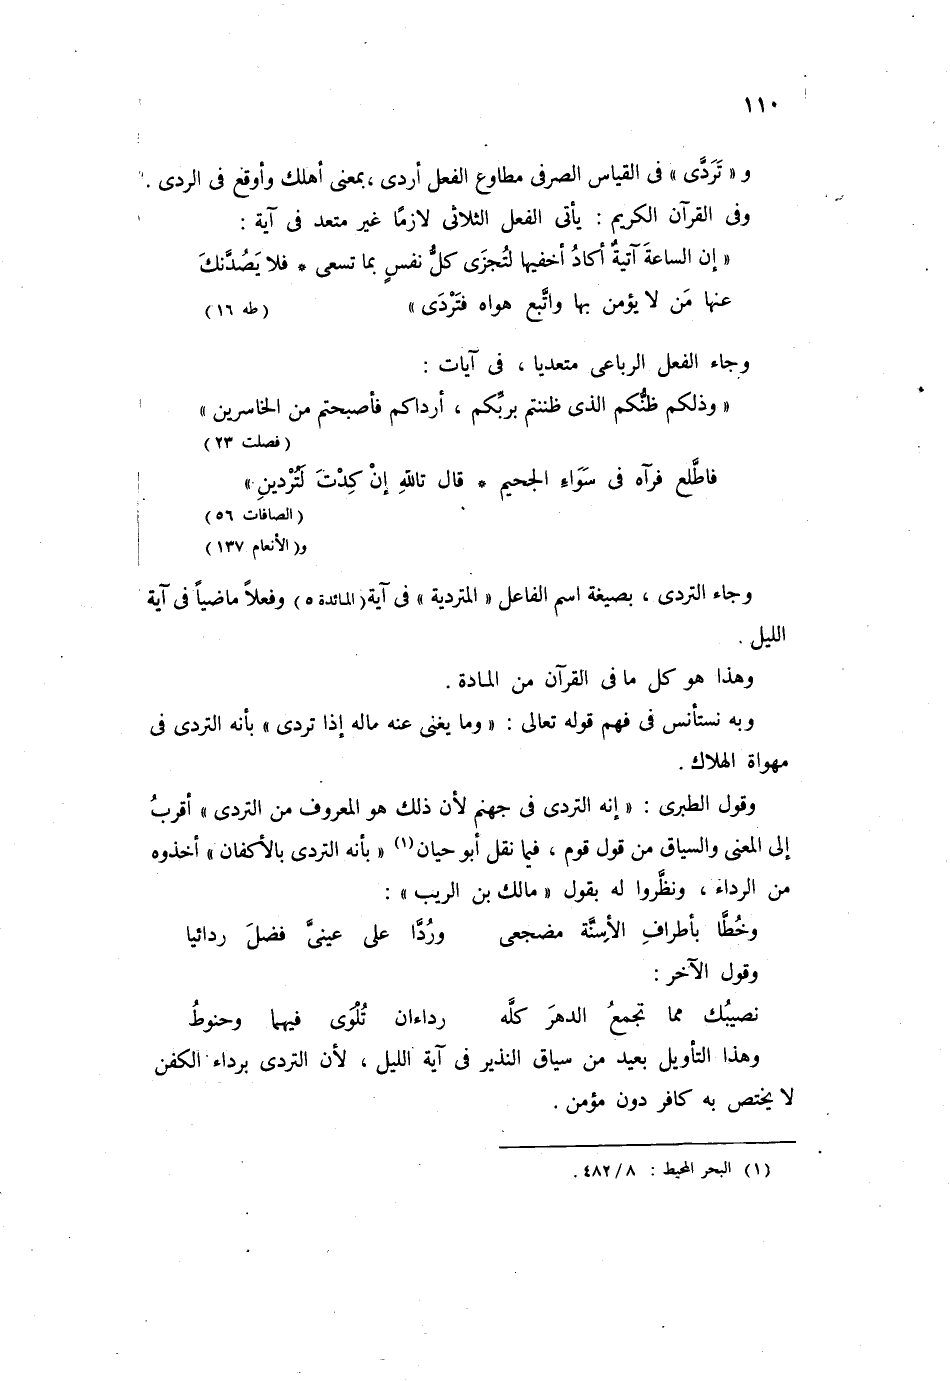 ١١٠
و « تَرَدَّى » فى القياس الصرفى مطاوع الفعل أردى ، بمعنى أهلك وأوقع فى الردى .
وفى القرآن الكريم : يأتى الفعل الثلاثى لازمًا غير متعد فى آية :
« إن الساعةَ آتيةٌ أكادُ أخفيها لتُجزَى كلُّ نفسٍ بما تسعى * فلا يَصُدَّنكَ
عنها مَن لا يؤمن بها واتَّبع هواه فتَرْدَى » (طه ١٦)
وجاء الفعل الرباعى متعديا ، فى آيات :
« وذلكم ظنُّكم الذى ظننتم بربِّكم ، أرداكم فأصبحتم من الخاسرين »
(فصلت ٢٣)
فاطَّلع فرآه فى سَوَاءِ الجحيم * قال تاللهِ إنْ كِدْتَ لَتُرْدينِ »
(الصافات ٥٦)
و(الأنعام ١٣٧)
وجاء التردى ، بصيغة اسم الفاعل « المتردية » فى آية (المائدة ٥) وفعلاً ماضياً فى آية
الليل .
وهذا هو كل ما فى القرآن من المادة .
وبه نستأنس فى فهم قوله تعالى : « وما يغنى عنه ماله إذا تردى » بأنه التردى فى
مهواة الهلاك .
وقول الطبرى : « إنه التردى فى جهنم لأن ذلك هو المعروف من التردى » أقربُ
إلى المعنى والسياق من قول قوم ، فيما نقل أبو حيان(١) « بأنه التردى بالأكفان » أخذوه
من الرداء ، ونظَّروا له بقول « مالك بن الريب » :
وخُطَّا بأطرافِ الأسِنَّة مضجعى ورُدَّا على عينىَّ فضلَ ردائيا
وقول الآخر :
نصيبُك مما تجمعُ الدهرَ كلَّه رداءان تُلْوَى فيهما وحنوطُ
وهذا التأويل بعيد من سياق النذير فى آية الليل ، لأن التردى برداء الكفن
لا يختص به كافر دون مؤمن .
(١) البحر المحيط : ٤٨٢/٨ .